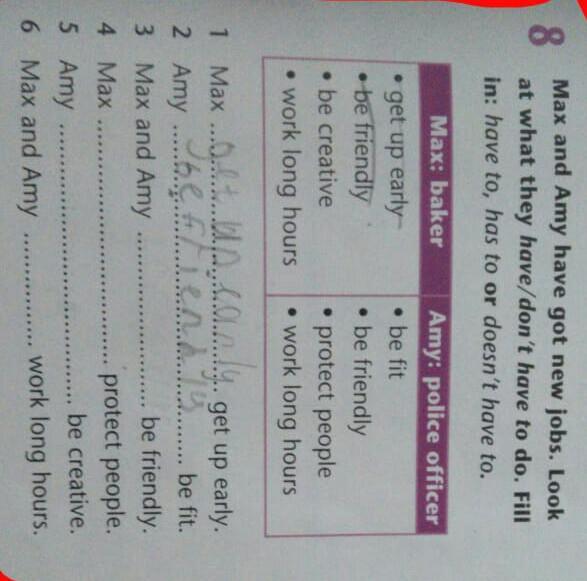 8 Max and Amy have got new jobs. Look
at what they have/don't have to do. Fill
in: have to, has to or doesn't have to.
Max: baker Amy: police officer
• get up early • be fit
• be friendly • be friendly
• be creative • protect people
• work long hours • work long hours
1 Max ........................ get up early.
get up early
2 Amy ........................ be fit.
be friendly
3 Max and Amy ........................ be friendly.
4 Max ........................ protect people.
5 Amy ........................ be creative.
6 Max and Amy ................ work long hours.